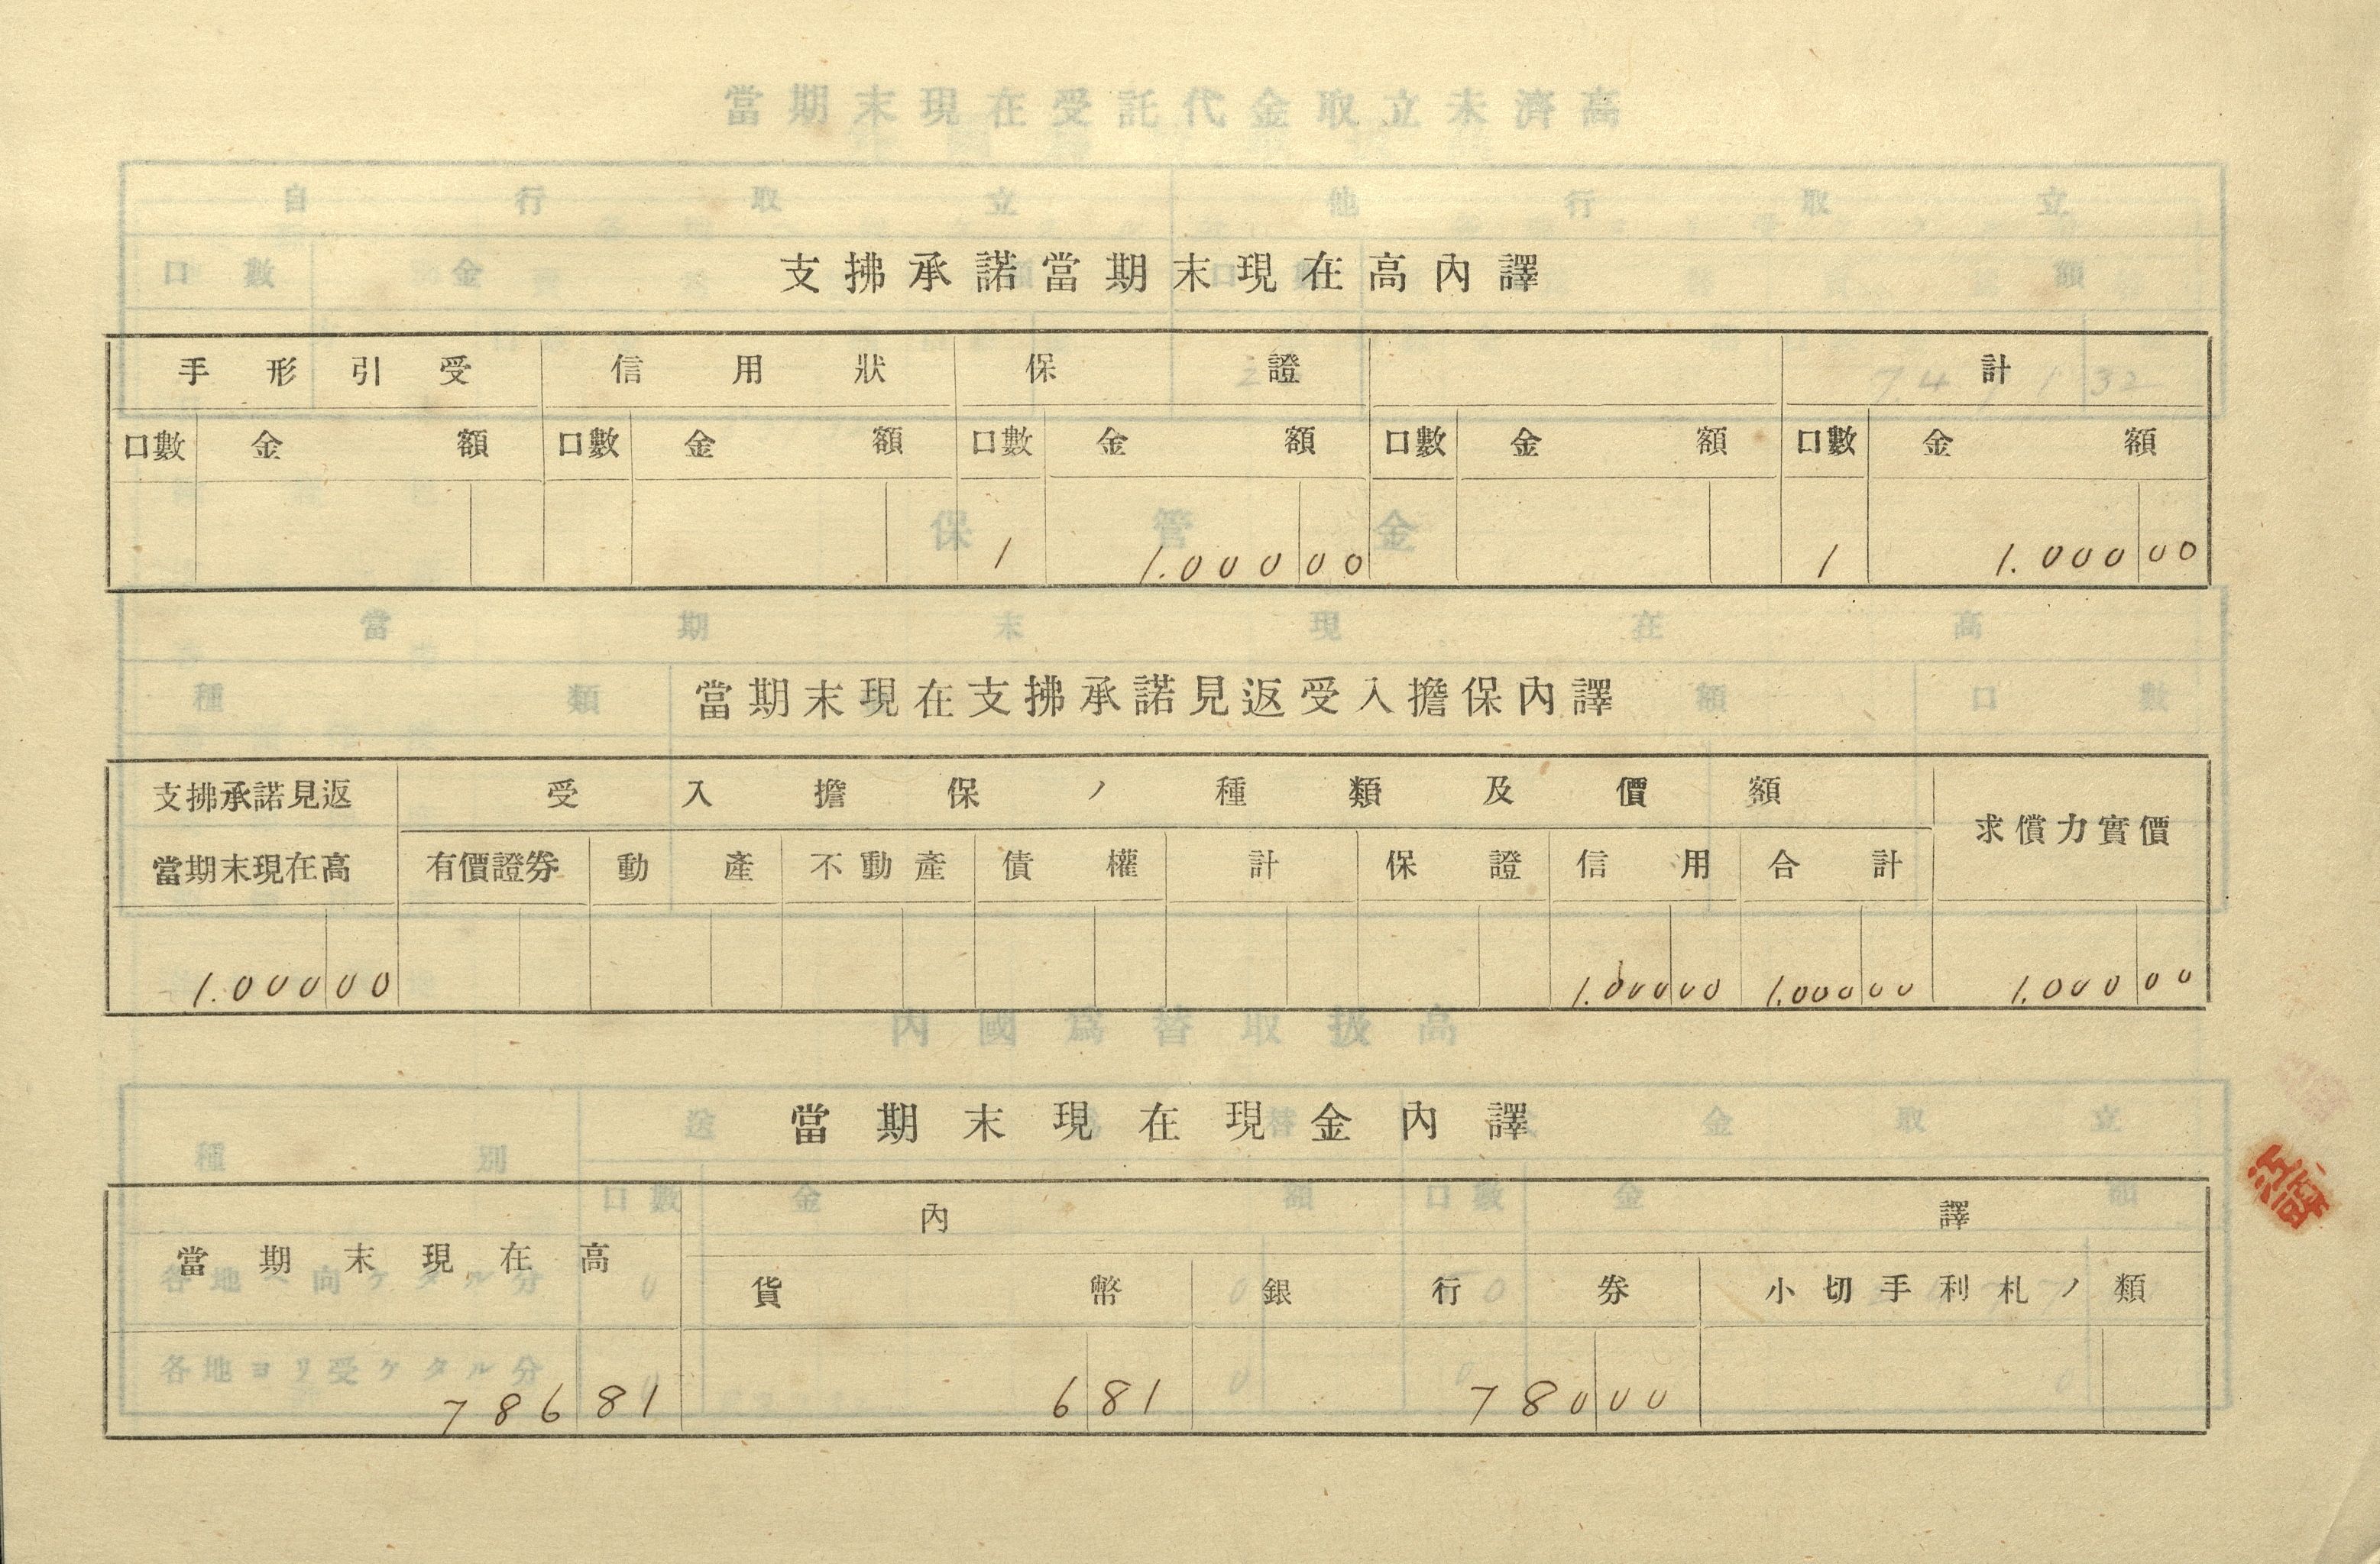 支拂承諾當期末現在高內譯
手形引受 信用狀 保證 計
口數 金額 口數 金額 口數 金額 口數 金額 口數 金額
1 1.000 00 1 1.000 00
當期末現在支拂承諾見返受入擔保內譯
支拂承諾見返 受入擔保ノ種類及價額 求償力實價
當期末現在高 有價證券 動產 不動產 債權 計 保證 信用 合計
1.000 00 1.000 00 1.000 00 1.000 00
當期末現在現金內譯
當期末現在高 內譯
貨幣 銀行券 小切手利札ノ類
786 81 6 81 780 00